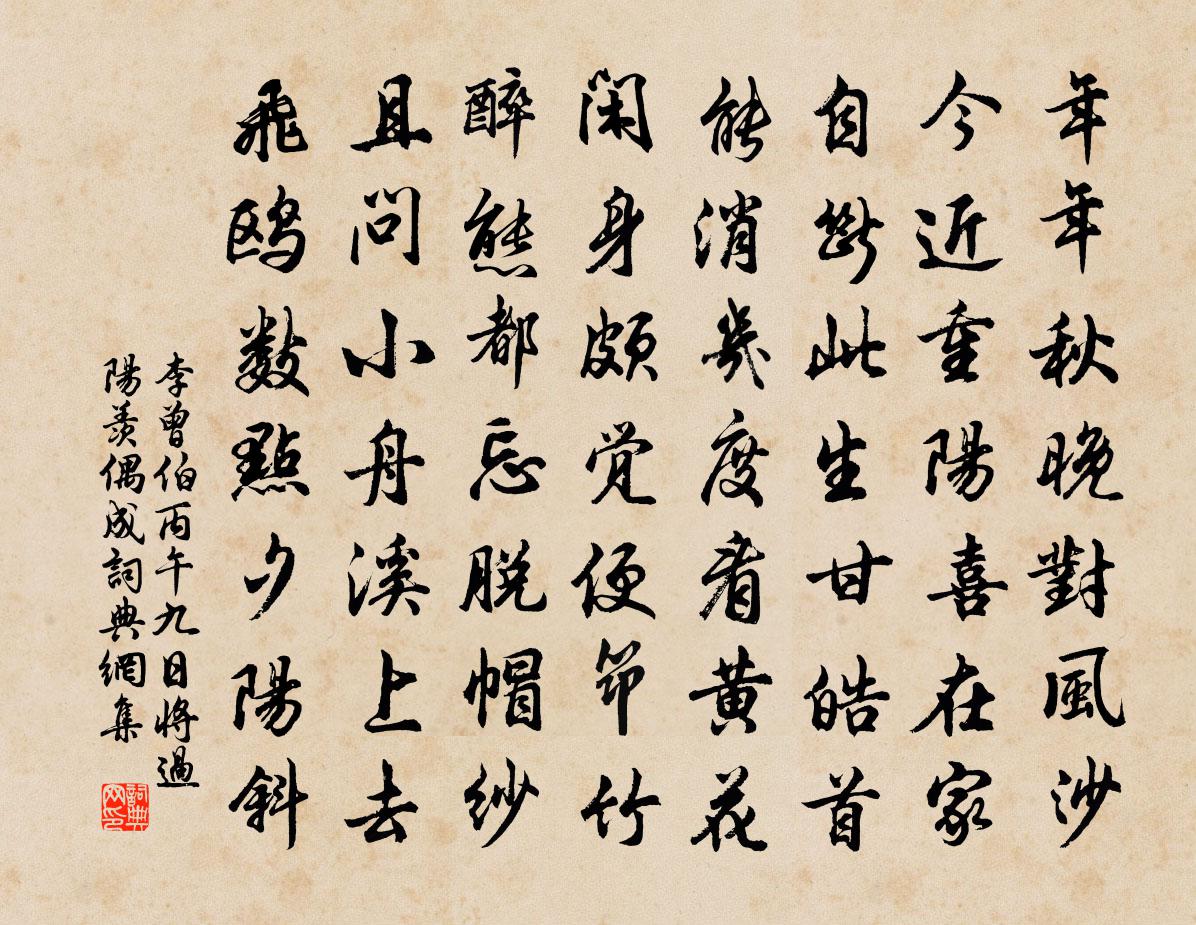 年年秋晚對風沙
今近重陽喜在家
自斷此生甘皓首
能消幾度看黃花
閑身頗覺便筇竹
醉態都忘脫帽紗
且問小舟溪上去
飛鷗數點夕陽斜
李曾伯丙午九日將過
陽羨偶成詞典網集
詞典
网印